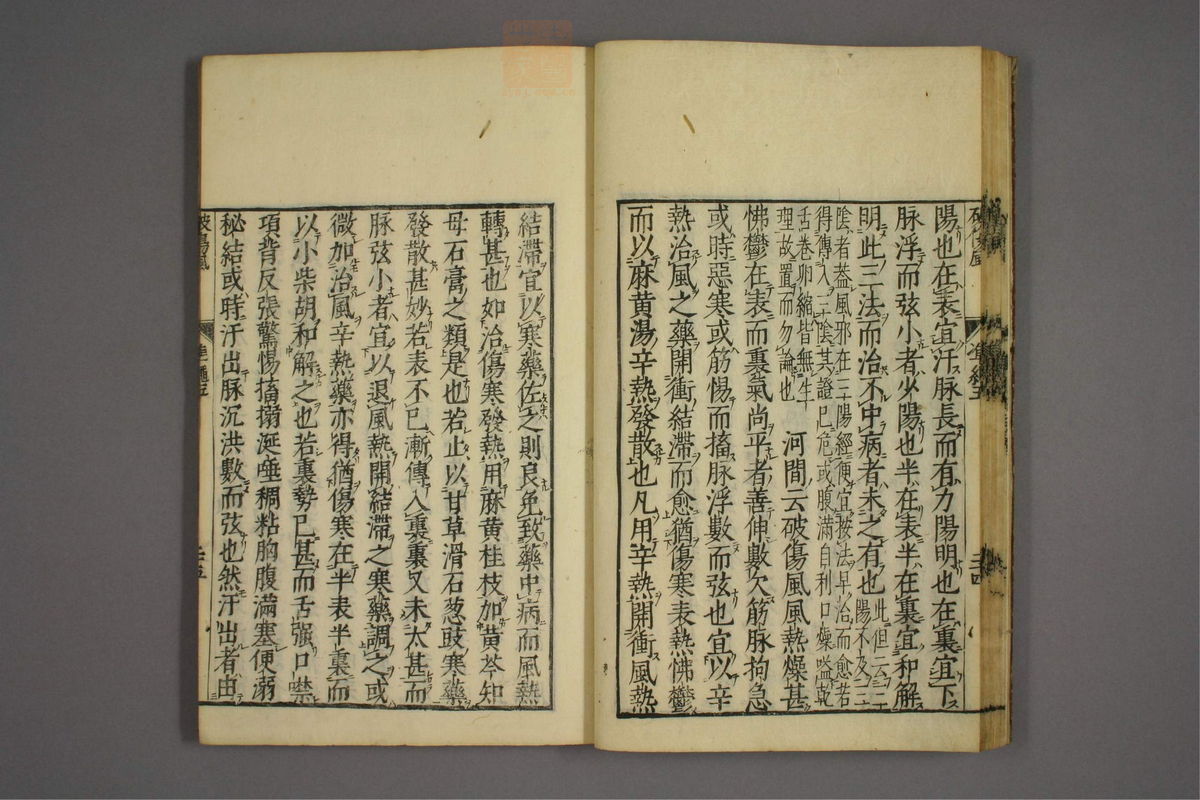 陽也在表宜汗脉長而有力陽明也在裏宜下
脉浮而弦小者少陽也半在表半在裏宜和解
明此三法而治不中病者未之有也此但云三
陽不及三
陰者葢風邪在三陽經便宜按法早治而愈若
得傳入三陰其證已危或腹滿自利口燥嗌乾
舌卷卵縮皆無生
理故置而勿論也
河間云破傷風風熱燥甚
怫鬱在表而裏氣尚平者善伸數欠筋脉拘急
或時惡寒或筋惕而搐脉浮數而弦也宜以辛
熱治風之藥開衝結滯而愈猶傷寒表熱怫鬱
而以麻黃湯辛熱發散也凡用辛熱開衝風熱
結滯宜以寒藥佐之則良免致藥中病而風熱
轉甚也如治傷寒發熱用麻黃桂枝加黃芩知
母石膏之類是也若止以甘草滑石葱豉寒藥
發散甚妙若表不已漸傳入裏裏又未太甚而
脉弦小者宜以退風熱開結滯之寒藥調之或
微加治風辛熱藥亦得猶傷寒在半表半裏而
以小柴胡和解之也若裏勢已甚而舌强口噤
項背反張驚惕搐搦涎唾稠粘胸腹滿塞便溺
秘結或時汗出脉沉洪數而弦也然汗出者由
破傷風
二十五